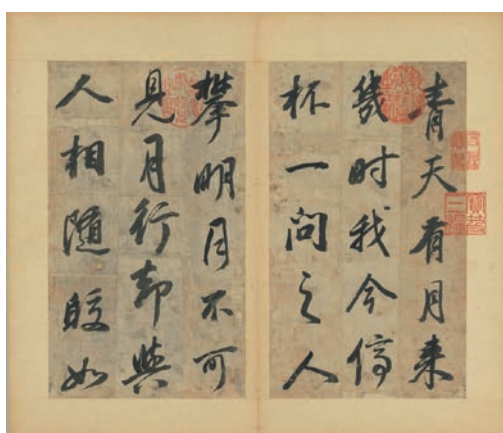 青天有月來
幾時我今停
杯一問之人
攀明月不可
見月行却與
人相隨皎如